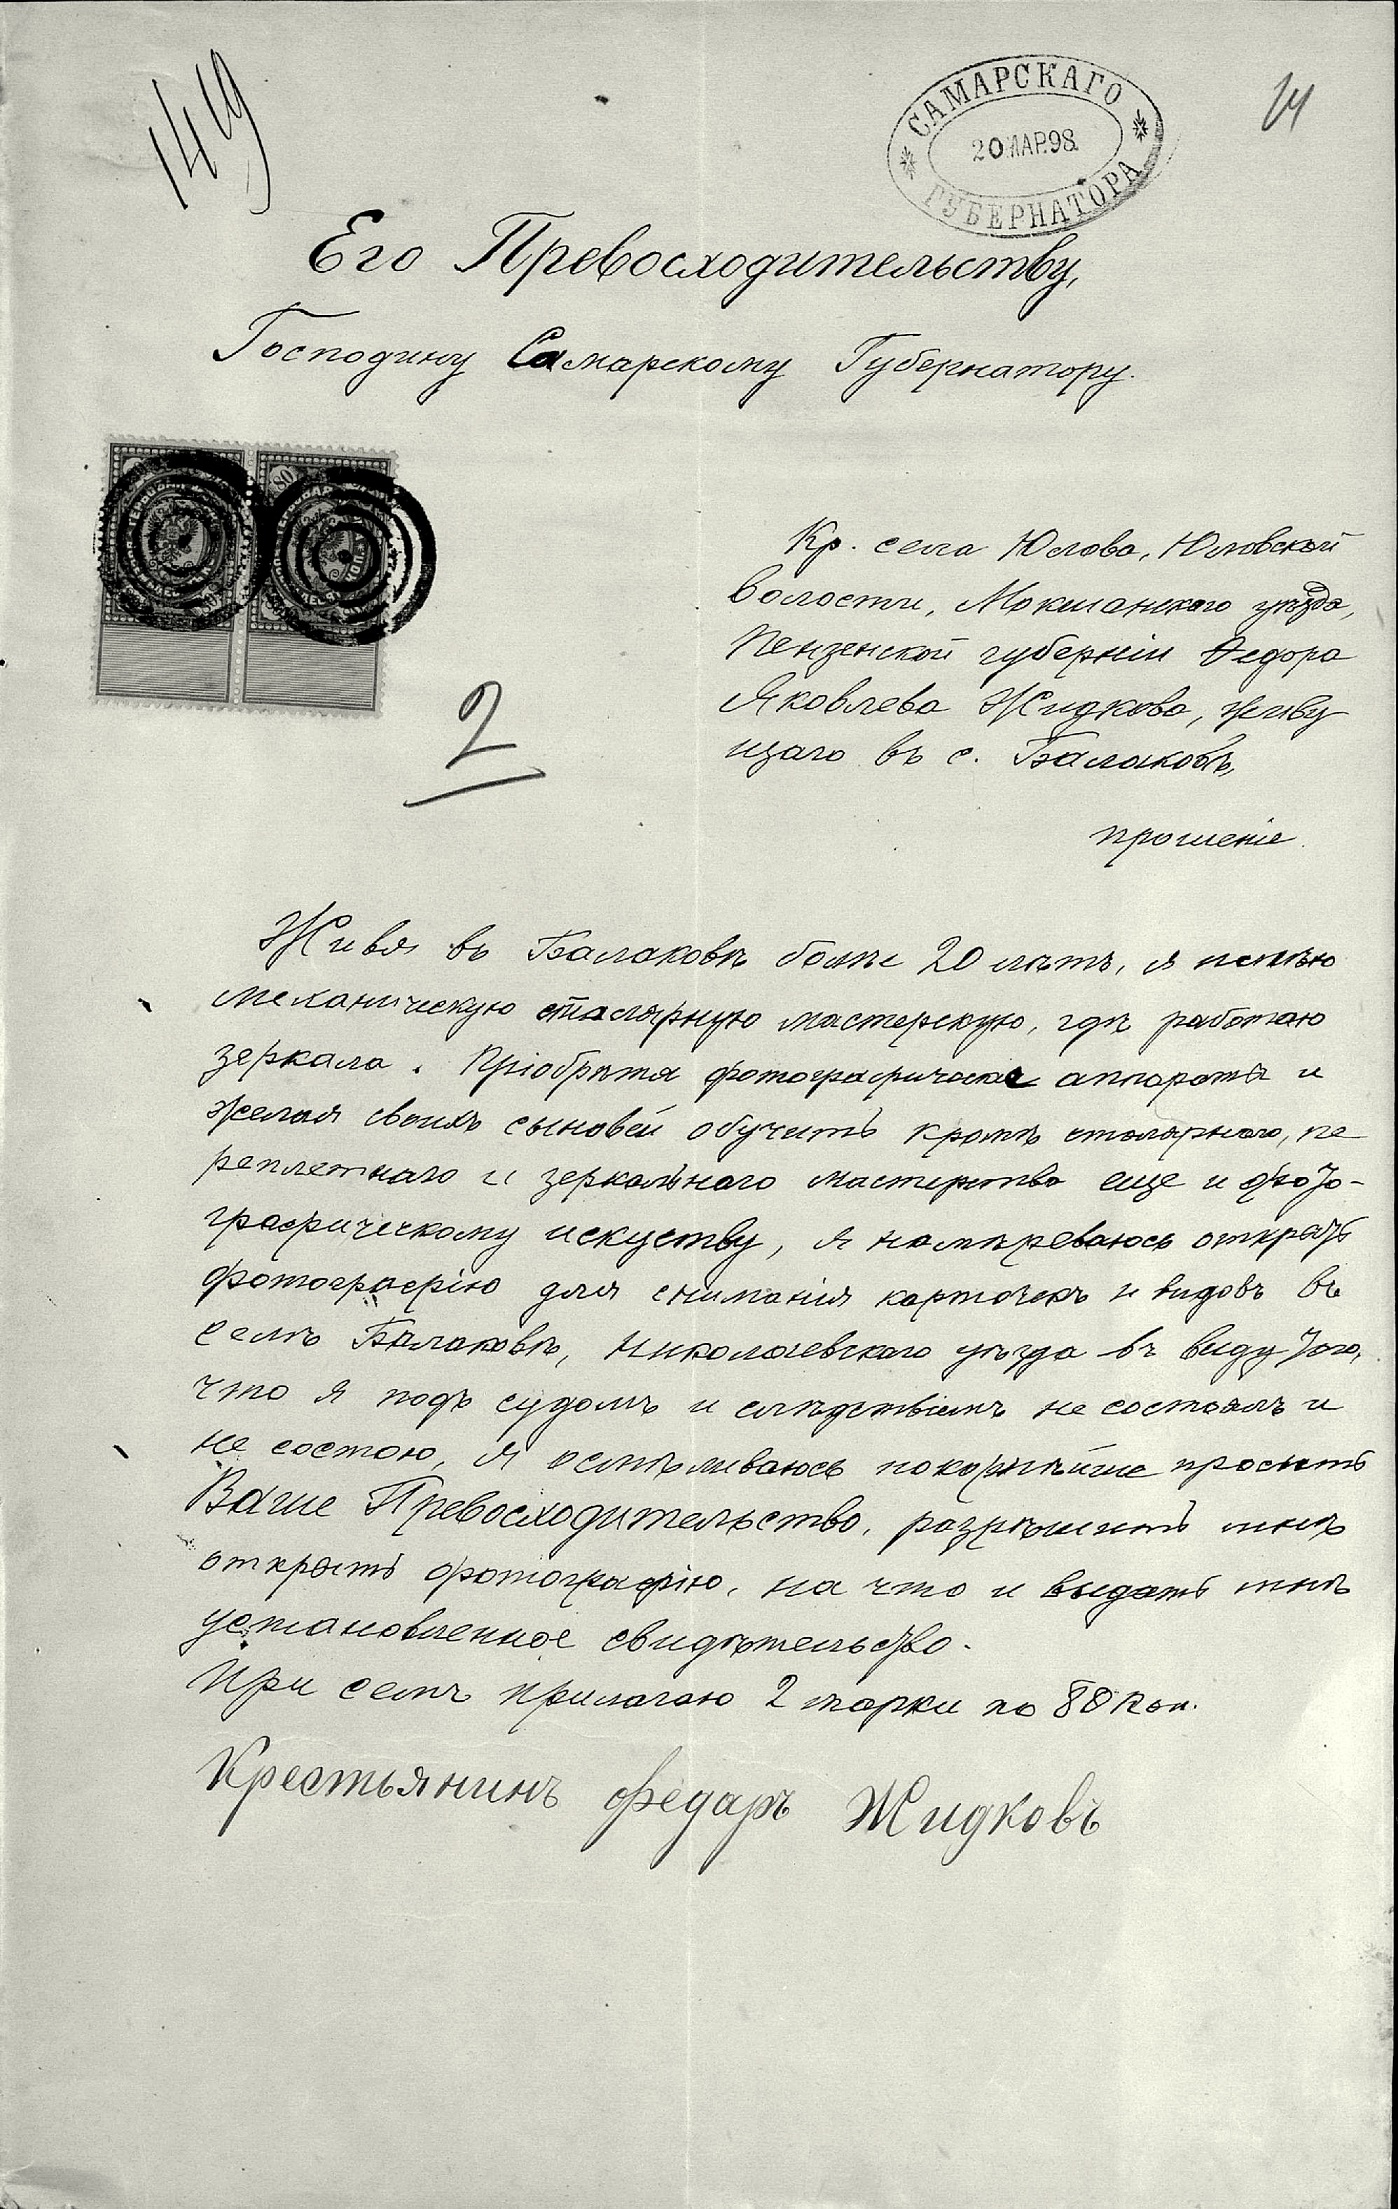 149
САМАРСКАГО
20 МАР.98.
ГУБЕРНАТОРА
Его Превосходительству,
Господину Самарскому Губернатору.
80
Кр. села Юлова, Юловской
волости, Мокшанскаго уѣзда,
Пензенской губерніи Ѳедора
Яковлева Жидкова, живу
щаго въ с. Балаковѣ,
2
прошеніе.
Живя въ Балаковѣ болѣе 20 лѣтъ, я имѣю
механическую сталярную мастерскую, гдѣ работаю
зеркала. Пріобрѣтя фотографическіе аппараты и
желая своихъ сыновей обучить кромѣ столярнаго, пе
реплетнаго и зеркальнаго мастерства еще и фото-
графическому искуству, я намѣреваюсь открыть
фотографію для сниманія карточекъ и видовъ въ
селѣ Балаковѣ, Николаевскаго уѣзда въ виду того,
что я подъ судомъ и слѣдствіемъ не состоялъ и
не состою, я осмѣливаюсь покорнѣйше просить
Ваше Превосходительство, разрѣшить мнѣ
открыть фотографію, на что и выдать мнѣ
установленное свидѣтельство.
При семъ прилагаю 2 марки по 80 коп.
Крестьянинъ Федаръ Жидковъ